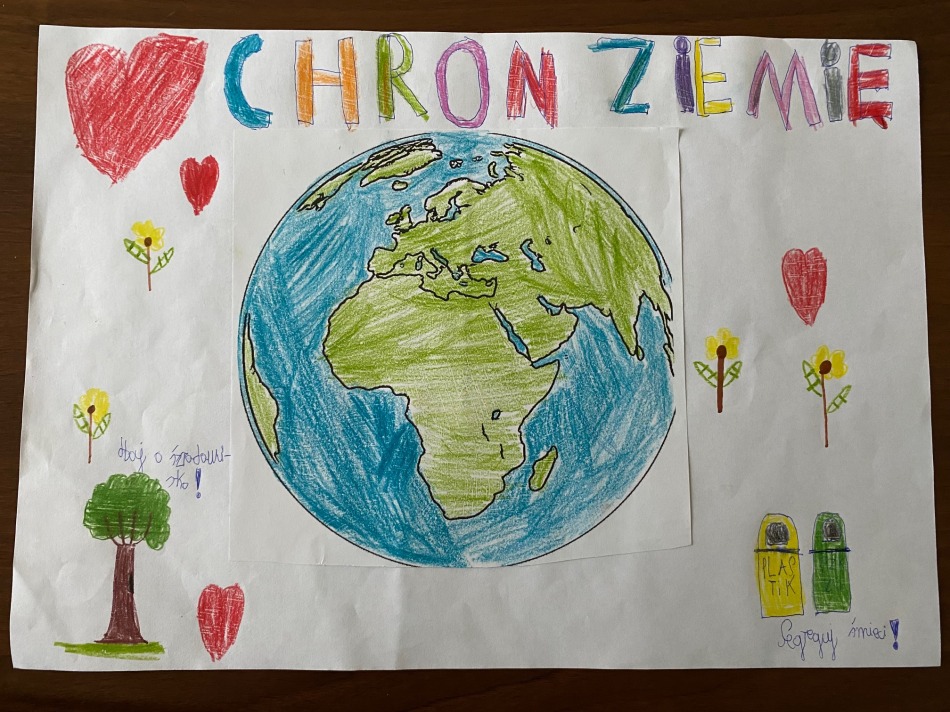 CHRON ZiEMiĘ
Dbaj o środowi-
sko!
PLAS
TiK
Segreguj śmieci!